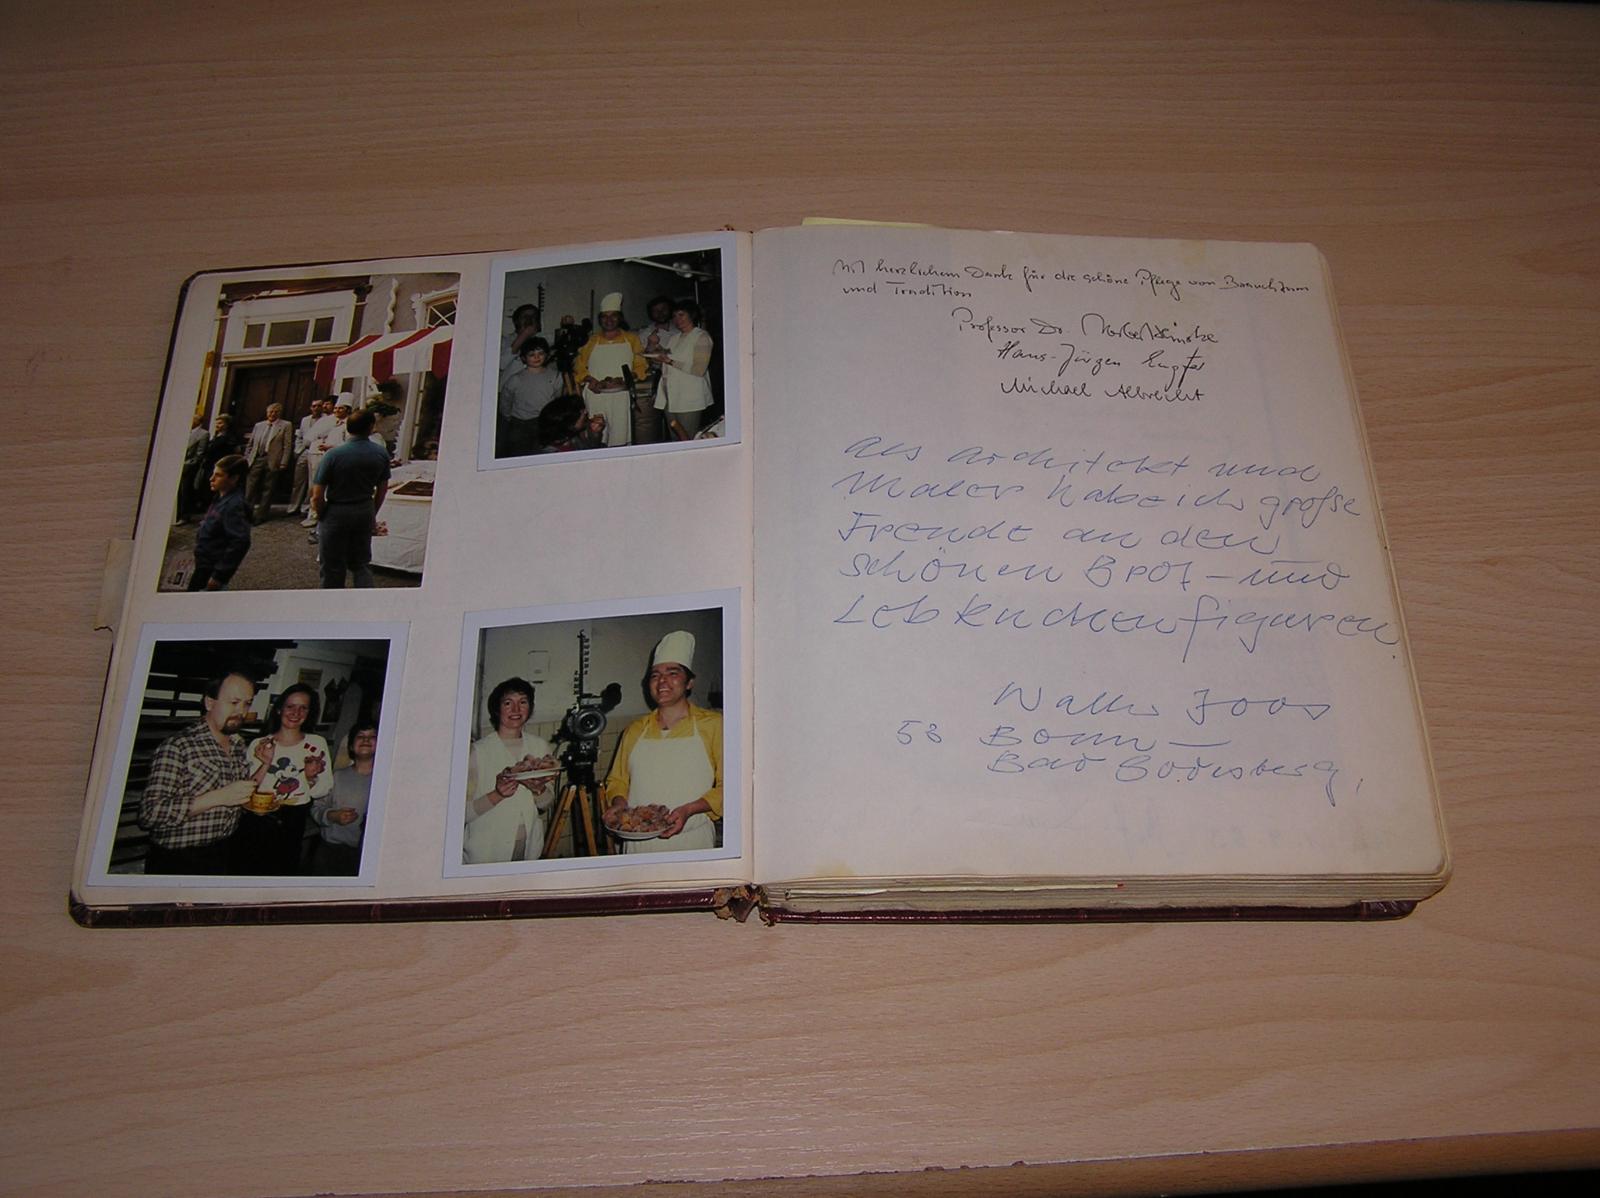 Mit herzlichem Dank für die schöne Pflege von Brauchtum
und Tradition
Professor Dr.
Hans-Jürgen
Michael Albrecht
Als Architekt und
Maler habe ich große
Freude an den
schönen Brot - und
Lebkuchenfiguren.
Walter Joos
53 Bonn -
Bad Godesberg,